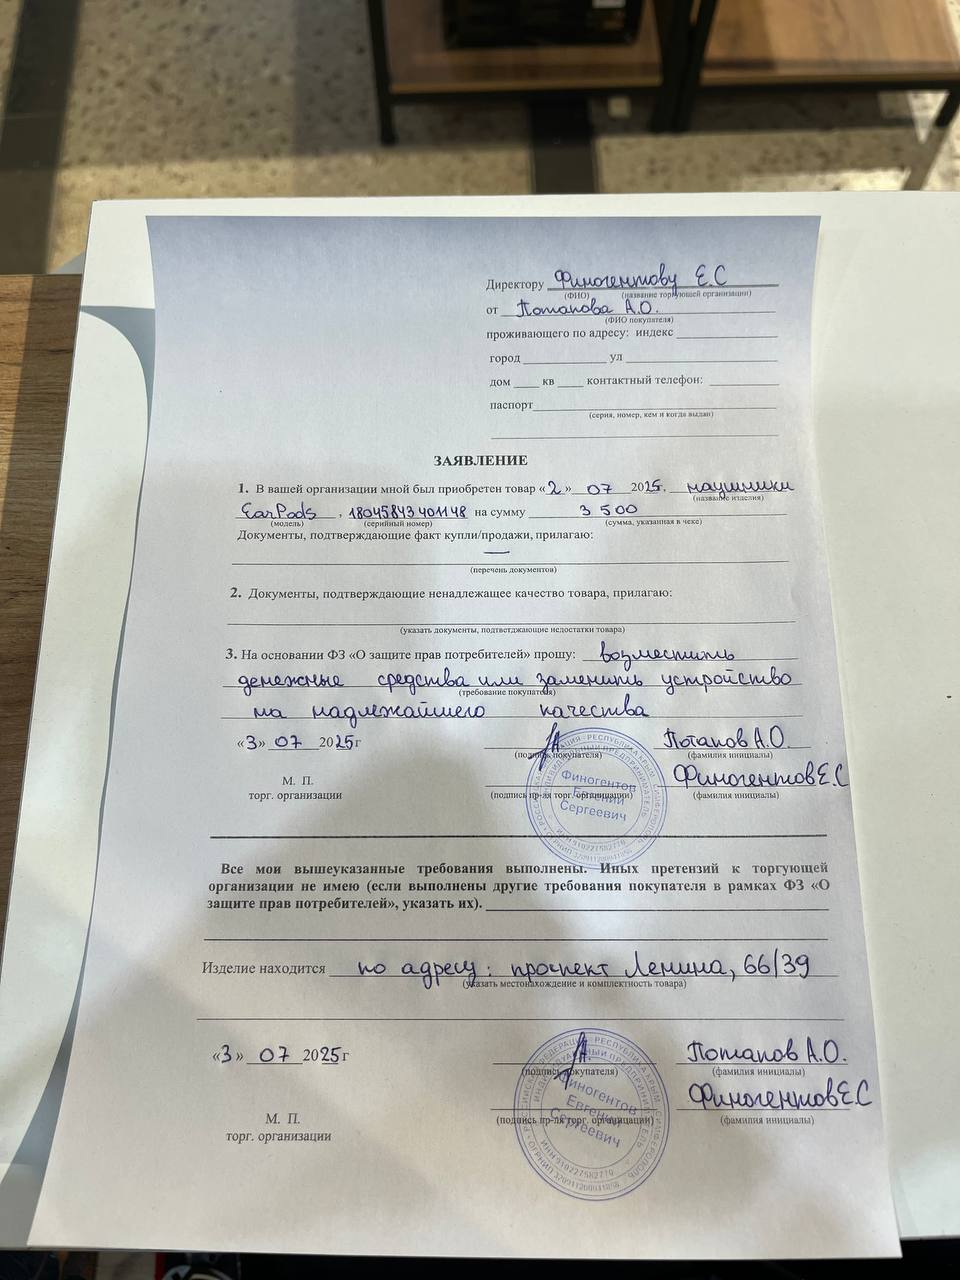 Директору Финогентову Е.С
(ФИО) (название торгующей организации)
от Потапова А.О.
(ФИО покупателя)
проживающего по адресу: индекс ____________
город ____________ ул ____________
дом ____ кв ____ контактный телефон: ____________
паспорт____________
(серия, номер, кем и когда выдан)
ЗАЯВЛЕНИЕ
1. В вашей организации мной был приобретен товар «2» 07 2025, наушники
(название изделия)
EarPods, 18045843401148 на сумму 3 500
(модель) (серийный номер) (сумма, указанная в чеке)
Документы, подтверждающие факт купли/продажи, прилагаю:
—
(перечень документов)
2. Документы, подтверждающие ненадлежащее качество товара, прилагаю:
(указать документы, подтветджающие недостатки товара)
3. На основании ФЗ «О защите прав потребителей» прошу: возместить
денежные средства или заменить устройство
(требование покупателя)
на надлежайшего качества
«3» 07 2025г Потапов А.О.
(подпись покупателя) (фамилия инициалы)
М. П. Финогентов Е.С
торг. организации (подпись пр-ля торг. организации) (фамилия инициалы)
Финогентов
Евгений
Сергеевич
Все мои вышеуказанные требования выполнены. Иных претензий к торгующей
организации не имею (если выполнены другие требования покупателя в рамках ФЗ «О
защите прав потребителей», указать их). ____________
Изделие находится по адресу: проспект Ленина, 66/39
(указать местонахождение и комплектность товара)
«3» 07 2025г Потапов А.О.
(подпись покупателя) (фамилия инициалы)
Финогентов Е.С
М. П. (подпись пр-ля торг. организации) (фамилия инициалы)
торг. организации
Финогентов
Евгений
Сергеевич